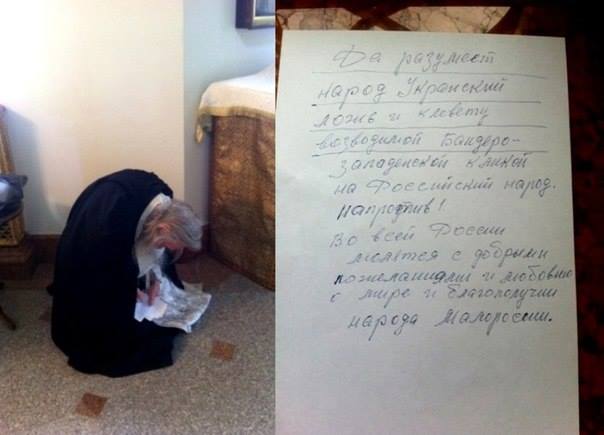 Да разумеет
народ Украйский
ложь и клевету
возводимой Бандеро-
западенской кликой
на Российский народ.
Напротив!
Во всей России
молятся с добрыми
пожеланиями и любовию
о мире и благополучии
народа Малороссии.